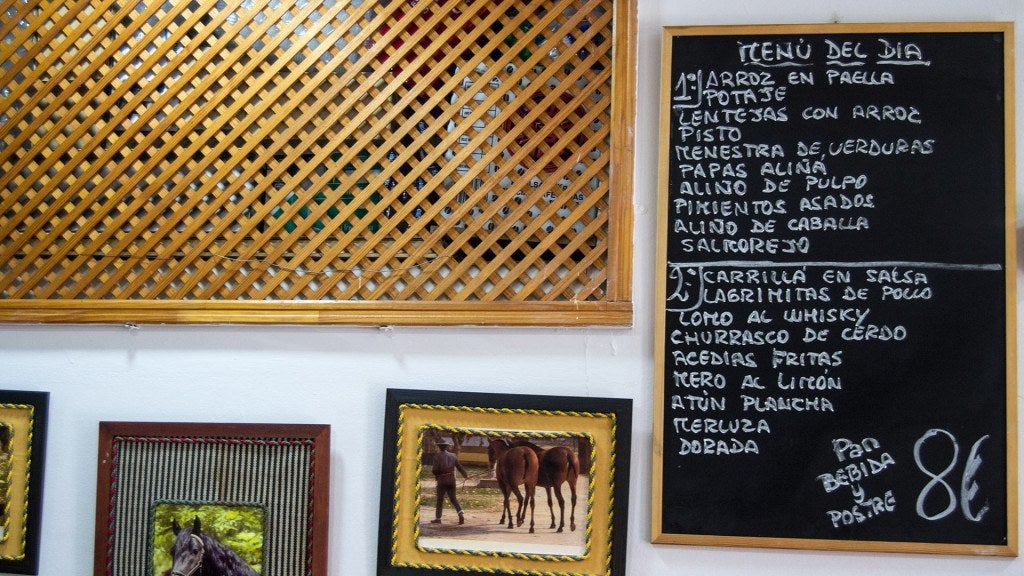 MENÚ DEL DIA
1º) ARROZ EN PAELLA
POTAJE
LENTEJAS CON ARROZ
PISTO
MENESTRA DE VERDURAS
PAPAS ALIÑÁ
ALIÑO DE PULPO
PIMIENTOS ASADOS
ALIÑO DE CABALLA
SALMOREJO
2º) CARRILLÁ EN SALSA
LAGRIMITAS DE POLLO
LOMO AL WHISKY
CHURRASCO DE CERDO
ACEDIAS FRITAS
MERO AL LIMÓN
ATÚN PLANCHA
MERLUZA
DORADA
Pan
BEBIDA
y
POSTRE
8€